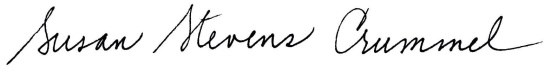 Susan Stevens Crummel